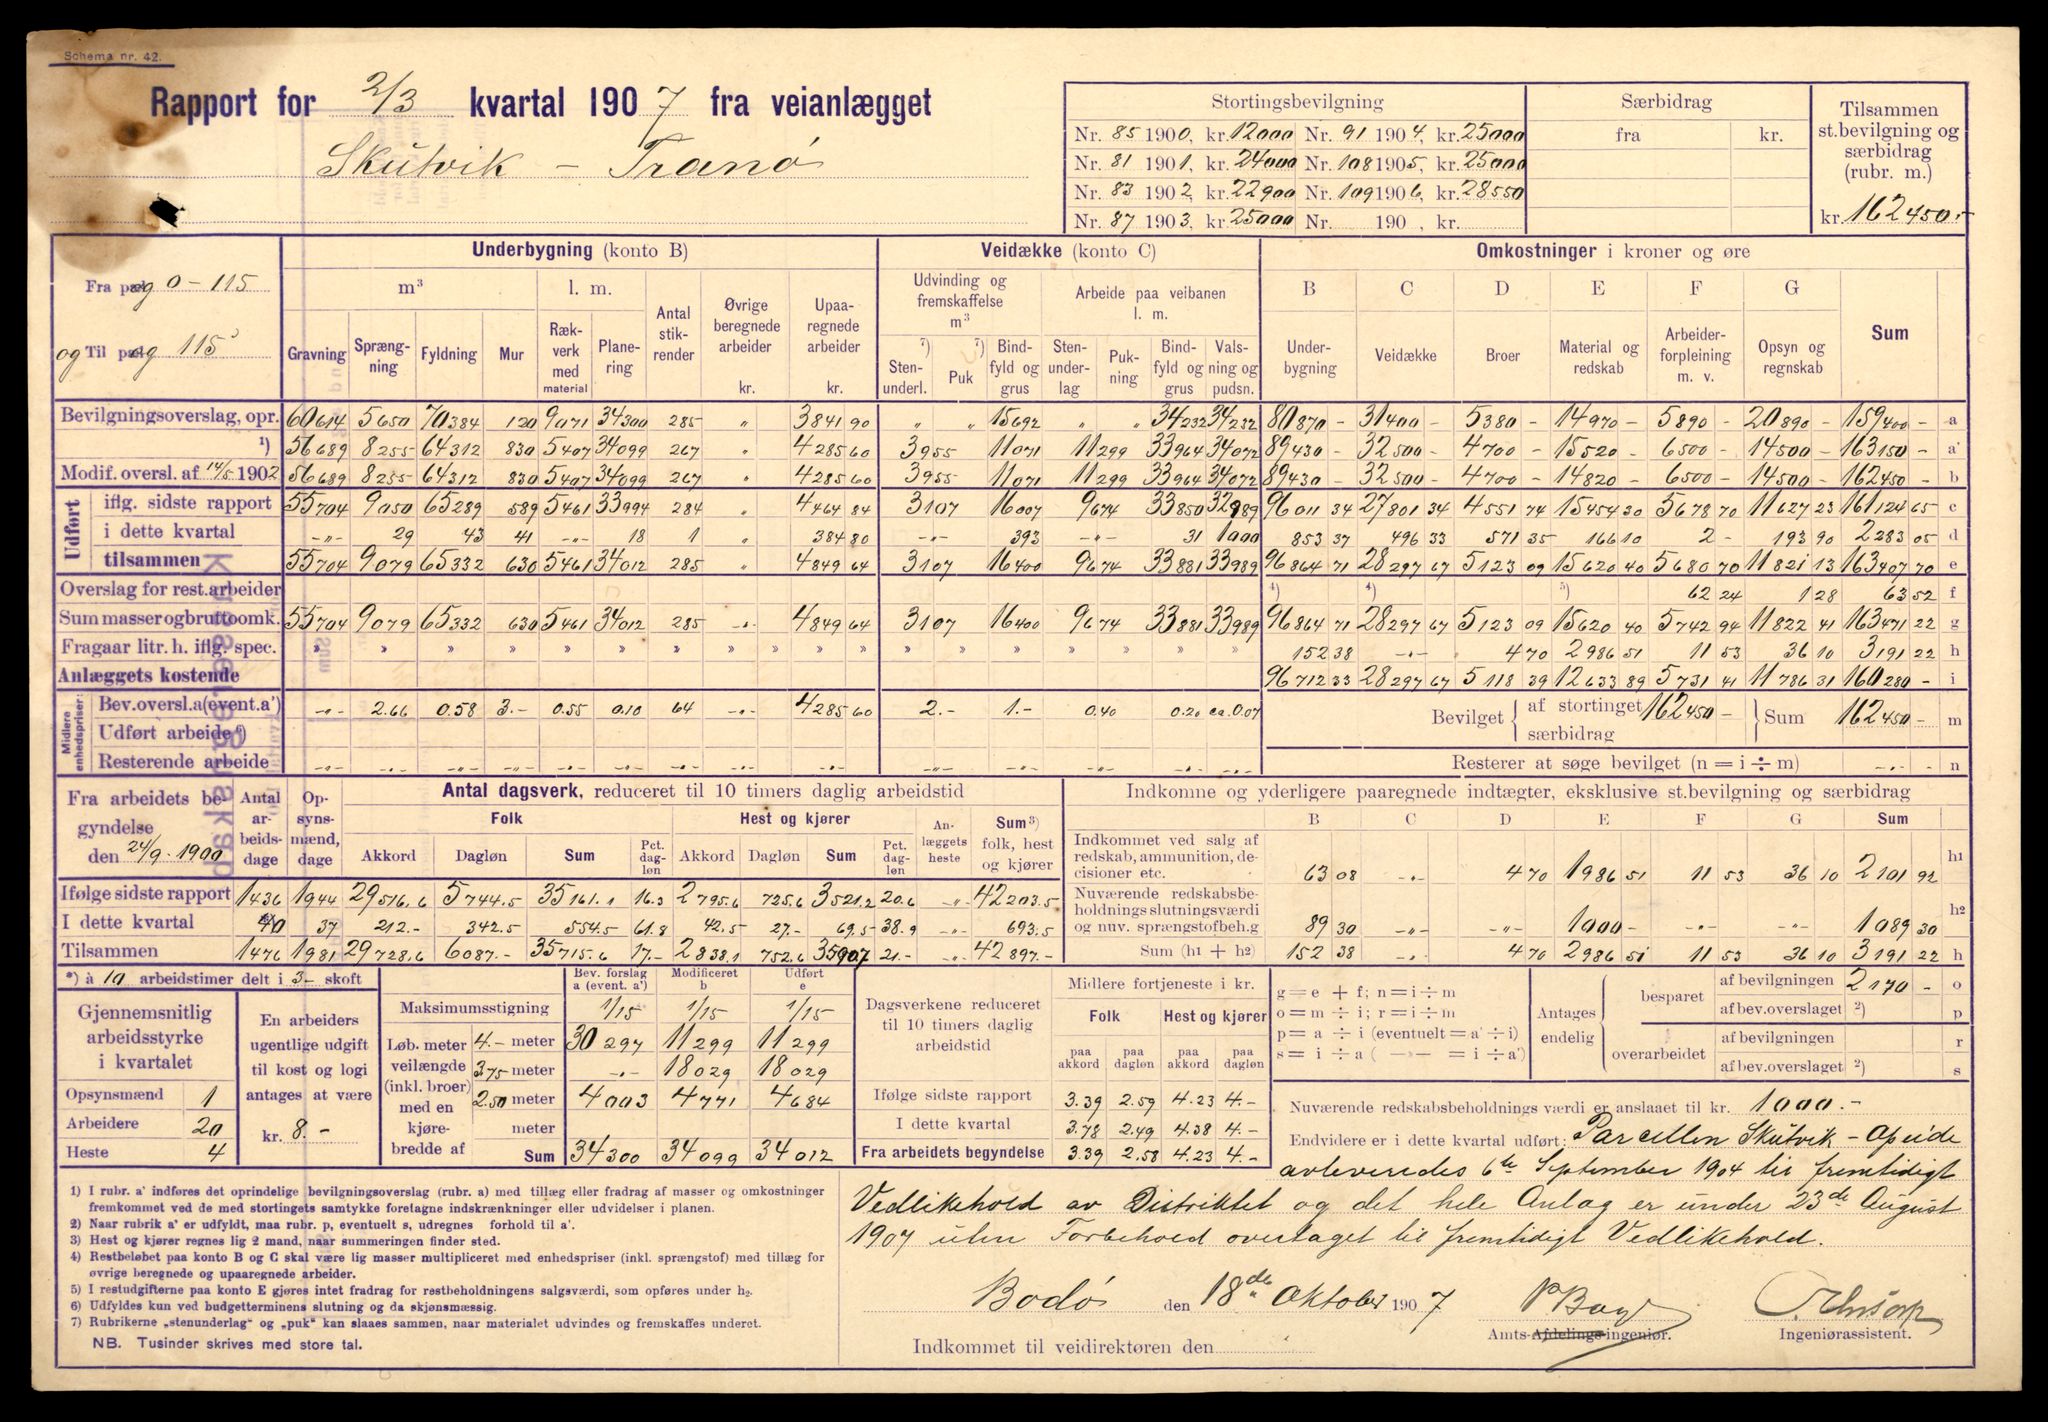 Schema nr. 42.
Rapport for 2/3 kvartal 1907 fra veianlægget
Skutvik – Tranö
Stortingsbevilgning Særbidrag Tilsammen st.bevilgning og særbidrag (rubr. m.)
fra kr.
Nr. 85 1900, kr. 12000 Nr. 91 1904, kr. 25000
Nr. 81 1901, kr. 24000 Nr. 108 1905, kr. 25000
Nr. 83 1902, kr. 22900 Nr. 109 1906, kr. 28550
Nr. 87 1903, kr. 25000 Nr. 190 , kr.
kr. 162450.-
Fra pæl og 0 – 115
og Til pæl og 115
Underbygning (konto B) Veidække (konto C) Omkostninger i kroner og øre
m³ l. m. Antal stikrender Øvrige beregnede arbeider kr. Upaaregnede arbeider kr.
Gravning Sprængning Fyldning Mur Rækverk med material Planering
Udvinding og fremskaffelse m³ Arbeide paa veibanen l. m.
7) Stenunderl. 7) Puk Bindfyld og grus Stenunderlag Pukning Bindfyld og grus Valsning og pudsn.
B C D E F G Sum
Underbygning Veidække Broer Material og redskab Arbeiderforpleining m. v. Opsyn og regnskab
Bevilgningsoverslag, opr. 60614 5650 70384 120 9071 34300 285 „ 3841 90 „ „ 15692 „ „ 34232 34232 80870 - 31400 - 5380 - 14970 - 5890 - 20890 - 159400 - a
1) 56689 8255 64312 830 5407 34099 267 „ 4285 60 3955 11071 11299 33964 34072 89430 - 32500 - 4700 - 15520 - 6500 - 14500 - 163150 - a'
Modif. oversl. af 14/5 1902 56689 8255 64312 830 5407 34099 267 4285 60 3955 11071 11299 33964 34072 89430 - 32500 - 4700 - 14820 - 6500 - 14500 - 162450 - b
Udført
iflg. sidste rapport 55704 9050 65289 589 5461 33994 284 „ 4464 84 3107 16007 9674 33850 32989 96011 34 27801 34 4551 74 15454 30 5678 70 11627 23 161124 65 c
i dette kvartal -„- 29 43 41 -„- 18 1 „ 384 80 -„- 393 -„- 31 1000 853 37 496 33 571 35 166 10 2 - 193 90 2283 05 d
tilsammen 55704 9079 65332 630 5461 34012 285 „ 4849 64 3107 16400 9674 33881 33989 96864 71 28297 67 5123 09 15620 40 5680 70 11821 13 163407 70 e
Overslag for rest. arbeider 4) 4) 5) 62 24 1 28 63 52 f
Sum masser og bruttoomk. 55704 9079 65332 630 5461 34012 285 -„- 4849 64 3107 16400 9674 33881 33989 96864 71 28297 67 5123 09 15620 40 5742 94 11822 41 163471 22 g
Fragaar litr. h. iflg. spec. » » » » » » » » » » » » » » » » 152 38 -„- 4 70 2986 51 11 53 36 10 3191 22 h
Anlæggets kostende 96712 33 28297 67 5118 39 12633 89 5731 41 11786 31 160280 - i
Midlere enhedspriser
Bev. oversl. a (event. a') -„- 2.66 0.58 3.- 0.55 0.10 64 -„- 4285 60 2.- 1.- 0.40 0.20 ca. 0.07
Bevilget af stortinget 162450 - Sum 162450 - m
Udført arbeide 6) særbidrag
Resterende arbeide -„- -„- -„- -„- -„- -„- -„- -„- -„- -„- -„- -„- -„- -„- Resterer at søge bevilget (n = i ÷ m) -„- - n
Fra arbeidets begyndelse den 24/9 - 1900
Antal arbeidsdage Opsynsmænd, dage
Antal dagsverk, reduceret til 10 timers daglig arbeidstid
Folk Hest og kjører Anlæggets heste Sum 3) folk, hest og kjører
Akkord Dagløn Sum Pct. dagløn Akkord Dagløn Sum Pct. dagløn
Ifølge sidste rapport 1436 1944 29516.6 5744.5 35161.1 16.3 2795.6 725.6 3521.2 20.6 -„- 42203.5
I dette kvartal 40 37 212.- 342.5 554.5 61.8 42.5 27.- 69.5 38.9 -„- 693.5
Tilsammen 1476 1981 29728.6 6087.- 35715.6 17.- 2838.1 752.6 3590.7 21.- -„- 42897.-
Indkomne og yderligere paaregnede indtægter, eksklusive st.bevilgning og særbidrag
B C D E F G Sum
Indkommet ved salg af redskab, ammunition, decisioner etc. 63 08 -„- 4 70 1986 51 11 53 36 10 2101 92 h1
Nuværende redskabsbeholdnings slutningsværdi og nuv. sprængstofbeh.g 89 30 -„- -„- 1000 - -„- -„- 1089 30 h2
Sum (h1 + h2) 152 38 -„- 4 70 2986 51 11 53 36 10 3191 22 h
*) à 10 arbeidstimer delt i 3 - skoft
Gjennemsnitlig arbeidsstyrke i kvartalet
Opsynsmænd 1
Arbeidere 20
Heste 4
En arbeiders ugentlige udgift til kost og logi antages at være kr. 8.-
Bev. forslag a (event. a') Modificeret b Udført e
Maksimumsstigning 1/15 1/15 1/15
Løb. meter veilængde (inkl. broer) med en kjørebredde af
4.- meter 30297 11299 11299
3.75 meter -„- 18029 18029
2.50 meter 4003 4771 4684
meter
Sum 34300 34099 34012
Dagsverkene reduceret til 10 timers daglig arbeidstid
Midlere fortjeneste i kr.
Folk Hest og kjører
paa akkord paa dagløn paa akkord paa dagløn
Ifølge sidste rapport 3.39 2.59 4.23 4.-
I dette kvartal 3.78 2.49 4.38 4.-
Fra arbeidets begyndelse 3.39 2.58 4.23 4.-
g = e + f; n = i ÷ m
o = m ÷ i; r = i ÷ m
p = a ÷ i (eventuelt = a' ÷ i)
s = i ÷ a ( —„— = i ÷ a')
Antages endelig
besparet af bevilgningen 2170 - o
af bev.overslaget 2) p
overarbeidet af bevilgningen r
af bev.overslaget 2) s
Nuværende redskabsbeholdnings værdi er anslaaet til kr. 1000.-
Endvidere er i dette kvartal udført: Parcellen Skutvik – Opeide
avleveredes 6te September 1904 til fremtidigt
Vedlikehold av Distriktet og det hele Anlæg er under 23de August
1907 uten Forbehold overtaget til fremtidigt Vedlikehold.
Bodö den 18de Oktober 1907
Amts-Afdelings-ingeniør. Ingeniørassistent.
Indkommet til veidirektøren den
1) I rubr. a' indføres det oprindelige bevilgningsoverslag (rubr. a) med tillæg eller fradrag af masser og omkostninger
fremkommet ved de med stortingets samtykke foretagne indskrænkninger eller udvidelser i planen.
2) Naar rubrik a' er udfyldt, maa rubr. p, eventuelt s, udregnes forhold til a'.
3) Hest og kjører regnes lig 2 mand, naar summeringen finder sted.
4) Restbeløbet paa konto B og C skal være lig masser multipliceret med enhedspriser (inkl. sprængstof) med tillæg for
øvrige beregnede og upaaregnede arbeider.
5) I restudgifterne paa konto E gjøres intet fradrag for restbeholdningens salgsværdi, som opføres under h2.
6) Udfyldes kun ved budgetterminens slutning og da skjønsmæssig.
7) Rubrikerne „stenunderlag“ og „puk“ kan slaaes sammen, naar materialet udvindes og fremskaffes underet.
NB. Tusinder skrives med store tal.